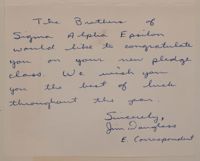 The Brothers of
Sigma Alpha Epsilon
would like to congratulate
you on your new pledge
class. We wish you
you the best of luck
throughout the year.
Sincerely,
Jim Douglass
E. Correspondent